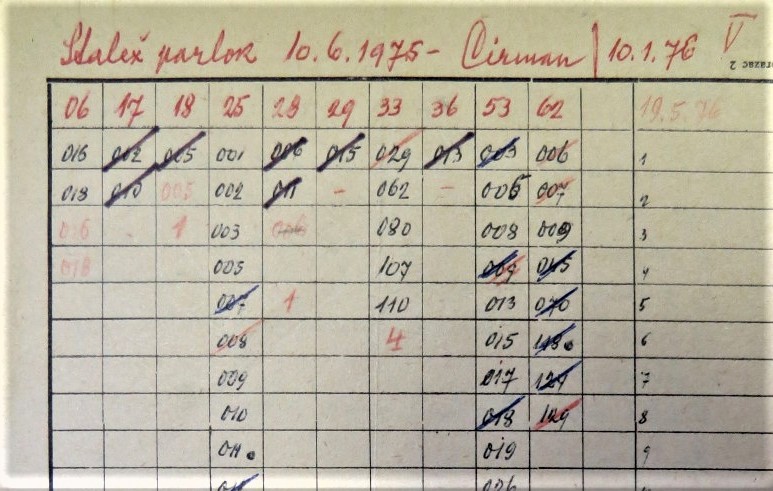 Stalež parlok 10.6.1975- Čirman / 10.1.76 V
razac 2
06 17 18 25 28 29 33 36 53 62 19.5.76
016 002 005 001 006 015 029 013 003 006 1
018 010 005 002 011 - 062 - 006 007 2
016 1 003 006 080 008 009 3
018 005 107 009 015 4
007 1 110 013 020 5
008 4 015 118. 6
009 017 124 7
010 018 129 8
011. 019 9
026